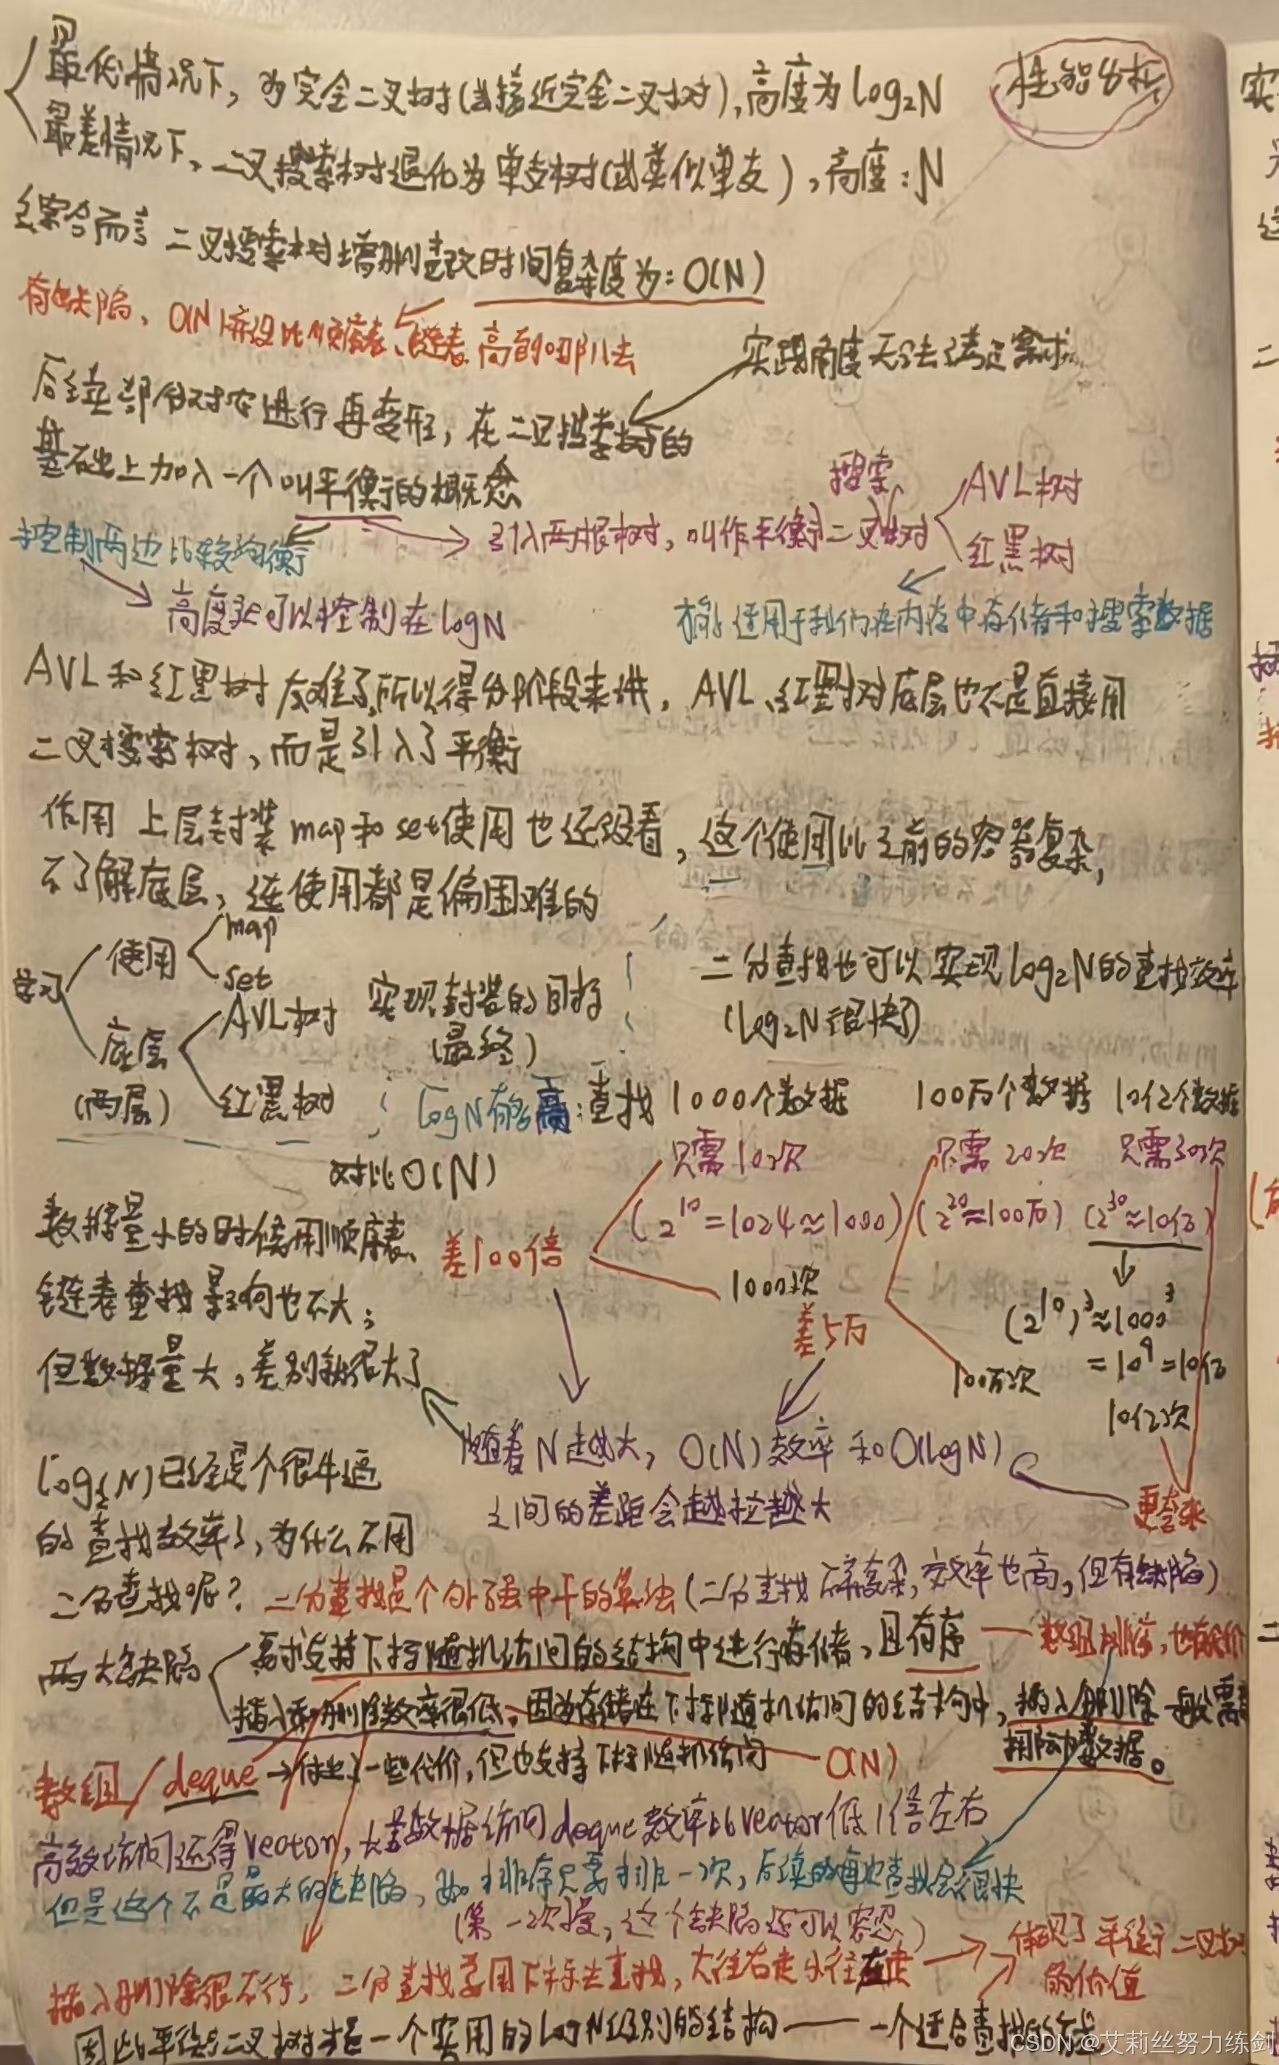 性能分析
最优情况下，为完全二叉树(或接近完全二叉树)，高度为log₂N
最差情况下，二叉搜索树退化为单支树(或类似单支)，高度：N
综合而言 二叉搜索树增删查改时间复杂度为：O(N)
有缺陷、O(N)并没比顺序表、链表高到哪儿去
实践角度无法满足需求
后续部分对它进行再变形，在二叉搜索树的
基础上加入一个叫平衡的概念
搜索
控制两边比较均衡
引入两棵树，叫作平衡二叉树
AVL树
红黑树
高度可以控制在logN
才能适用于我们在内存中存储和搜索数据
AVL和红黑树太难了，所以得分阶段来讲，AVL、红黑树底层也不是直接用
二叉搜索树，而是引入了平衡
作用 上层封装map和set使用也还没看，这个使用比之前的容器复杂，
不了解底层，连使用都是偏困难的
学习
使用
map
set
底层
(两层)
AVL树
红黑树
实现封装的目标
(最终)
二分查找也可以实现log₂N的查找效率
(log₂N很快了)
logN有多高：查找 1000个数据 100万个数据 10亿个数据
对比O(N)
只需10次 只需20次 只需30次
(2¹⁰=1024≈1000) (2²⁰≈100万) (2³⁰≈10亿)
差100倍
1000次
差5万
100万次
(2¹⁰)³≈1000³
=10⁹=10亿
10亿次
更夸张
数据量小的时候用顺序表、
链表查找影响也不大；
但数据量大，差别就很大了
随着N越大，O(N)效率和O(logN)
之间的差距会越拉越大
log₂(N)已经是个很牛逼
的查找效率了，为什么不用
二分查找呢？二分查找是个外强中干的算法(二分查找 效率也高，但有缺陷)
两大缺陷
需要支持下标随机访问的结构中进行存储，且有序
插入和删除效率很低。因为存储在下标随机访问的结构中，插入删除一般需
挪动数据。
O(N)
数组/deque→付出一些代价，但也支持下标随机访问
高效访问还得vector，大量数据访问deque效率比vector低1倍左右
但是这个不是最大的缺陷，如排序只要排一次，后续的再查找会很快
(第一次慢，这个缺陷还可以容忍)
插入删除很不行，二分查找要用下标去查找，大往右走小往左走
体现了平衡二叉树
的价值
因此平衡二叉树才是一个实用的logN级别的结构——一个适合查找的
CSDN @艾莉丝努力练剑